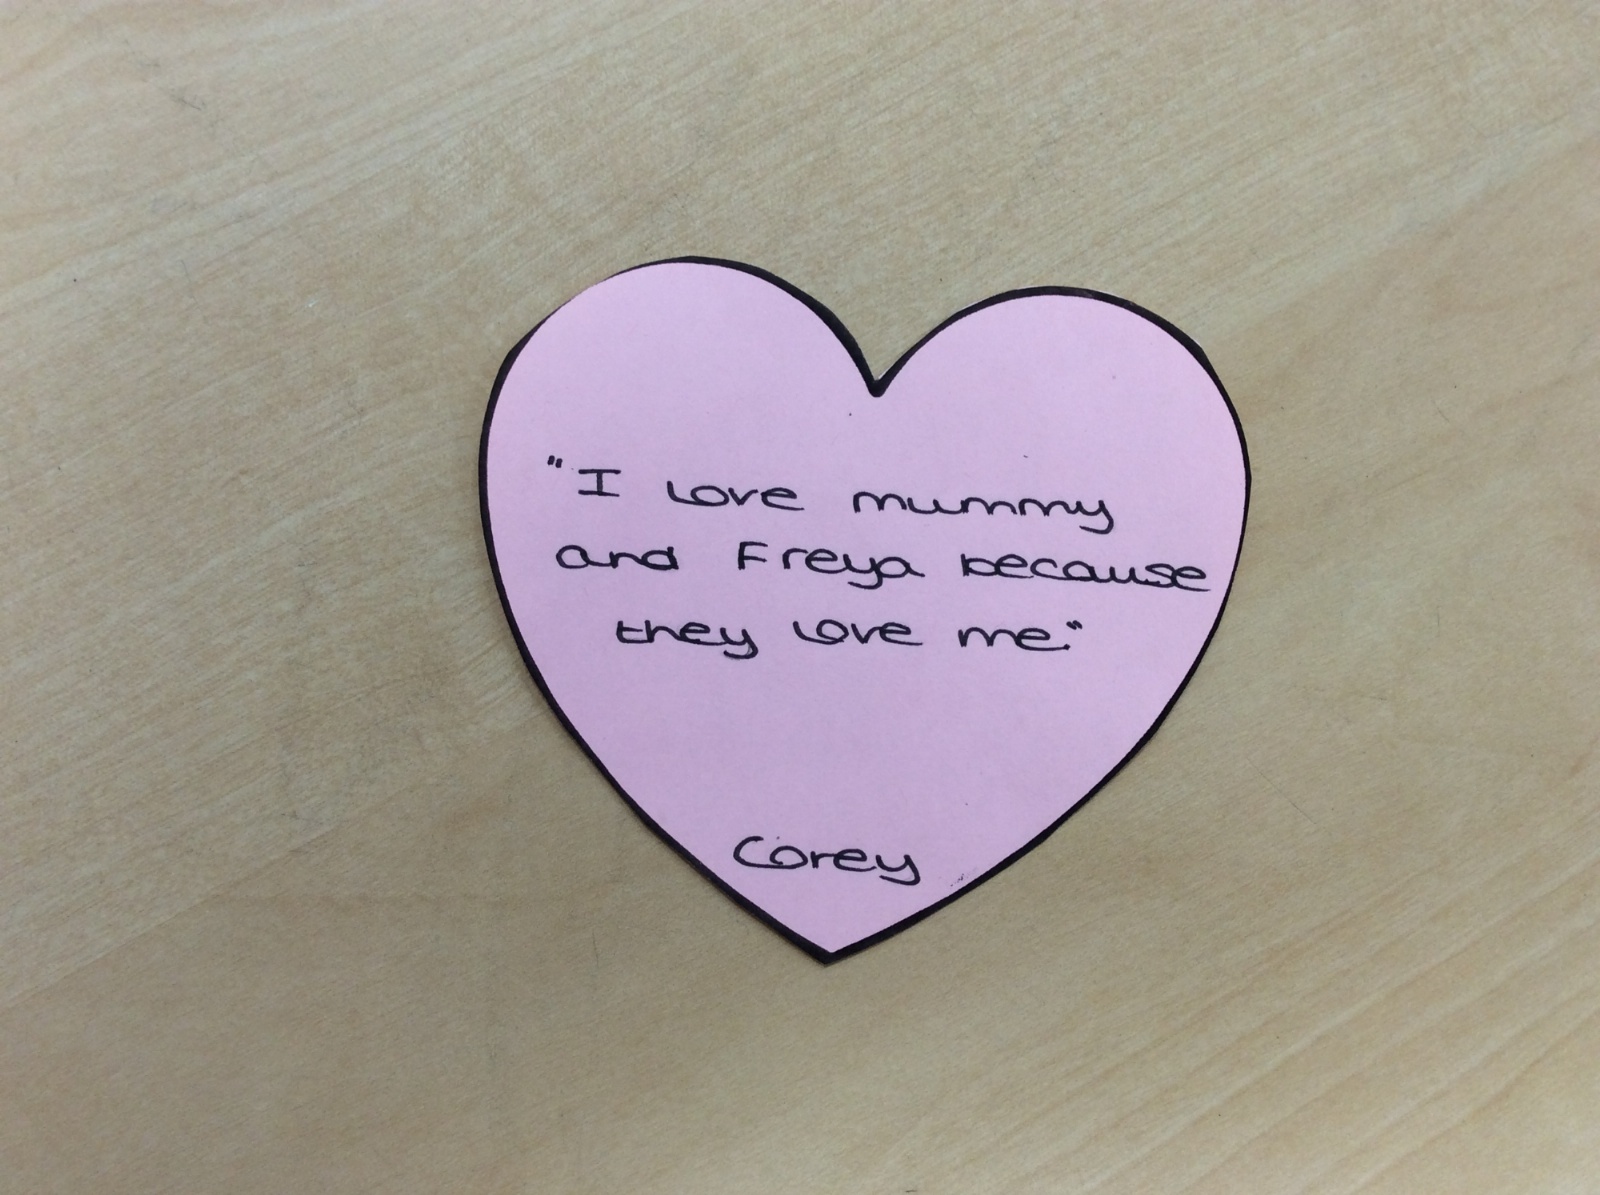 "I love mummy
and Freya because
they love me."
Corey